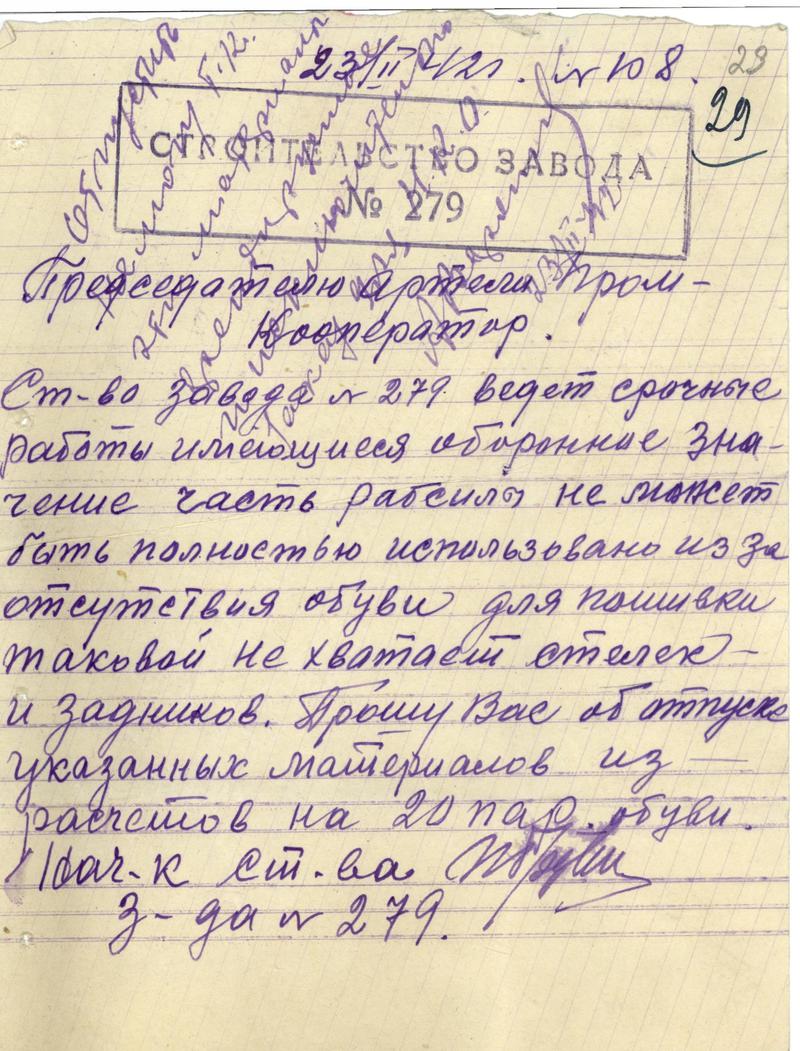 23/II 42г. № 108.
29
29
СТРОИТЕЛЬСТВО ЗАВОДА
№ 279
Председателю артели Пром-
Кооператор.
Ст-во завода № 279 ведет срочные
работы имеющиеся оборонное зна-
чение часть рабсилы не может
быть полностью использовано из за
отсутствия обуви для пошивки
таковой не хватает стелек
и задников. Прошу Вас об отпуске
указанных материалов из
расчетов на 20 пар. обуви.
Нач-к ст-ва
з-да № 279.
Отпустить
Г.К.
материалы
23/II-42